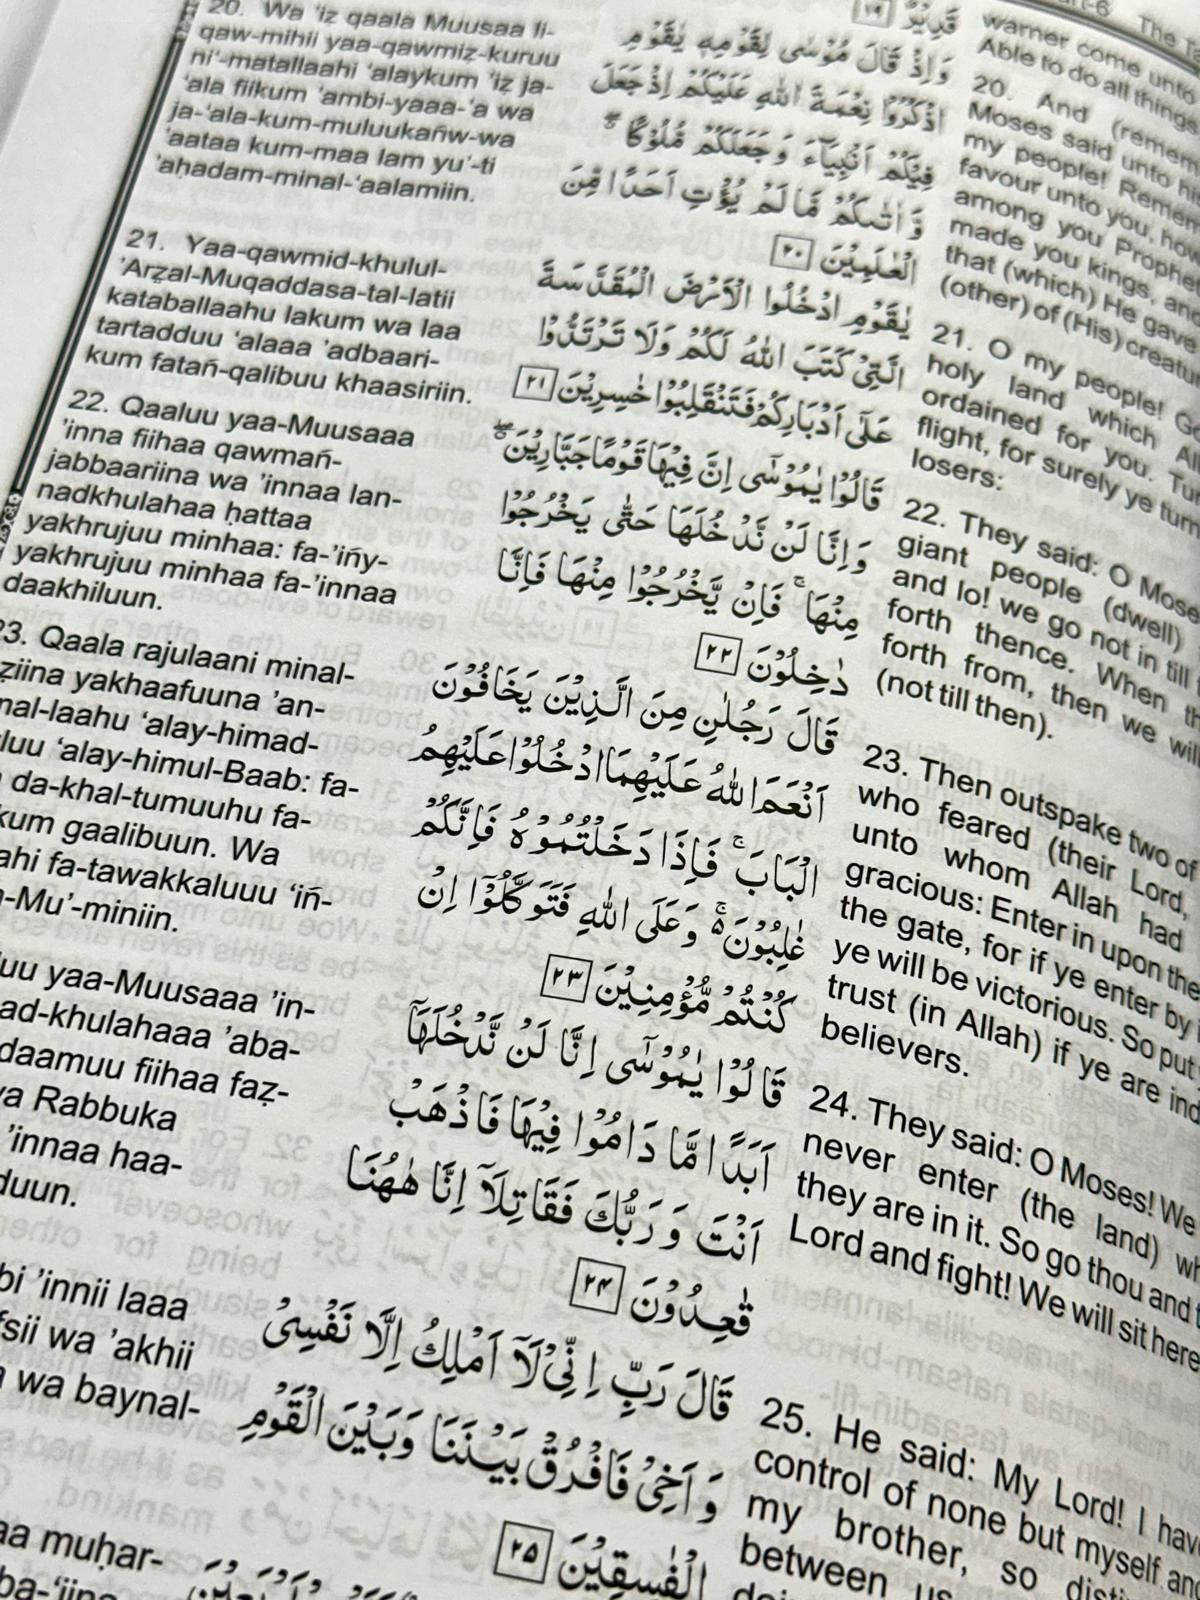 20. Wa 'iz qaala Muusaa li-
qaw-mihii yaa-qawmiẓ-kuruu
ni'-matallaahi ‘alaykum 'iz ja-
‘ala fiikum 'ambi-yaaa-'a wa
ja-‘ala-kum-muluukañw-wa
'aataa kum-maa lam yu'-ti
'aḥadam-minal-‘aalamiin.
21. Yaa-qawmid-khulul-
'Arẓal-Muqaddasa-tal-latii
kataballaahu lakum wa laa
tartadduu ‘alaaa 'adbaari-
kum fatañ-qalibuu khaasiriin.
22. Qaaluu yaa-Muusaaa
'inna fiihaa qawmañ-
jabbaariina wa 'innaa lan-
nadkhulahaa ḥattaa
yakhrujuu minhaa: fa-'iñy-
yakhrujuu minhaa fa-'innaa
daakhiluun.
23. Qaala rajulaani minal-
ẓiina yakhaafuuna 'an-
mal-laahu ‘alay-himad-
luu ‘alay-himul-Baab: fa-
da-khal-tumuuhu fa-
kum gaalibuun. Wa
ahi fa-tawakkaluuu 'iñ-
-Mu'-miniin.
uu yaa-Muusaaa 'in-
ad-khulahaaa 'aba-
daamuu fiihaa faẓ-
wa Rabbuka
'innaa haa-
duun.
bi 'innii laaa
fsii wa 'akhii
wa baynal-
aa muḥar-
قَدِيْرٌ ١٩
وَاِذْ قَالَ مُوْسٰى لِقَوْمِهٖ يٰقَوْمِ
اذْكُرُوْا نِعْمَةَ اللّٰهِ عَلَيْكُمْ اِذْ جَعَلَ
فِيْكُمْ اَنْۢبِيَآءَ وَجَعَلَكُمْ مُّلُوْكًا ۖ
وَّاٰتٰىكُمْ مَّا لَمْ يُؤْتِ اَحَدًا مِّنَ
الْعٰلَمِيْنَ ٢٠
يٰقَوْمِ ادْخُلُوا الْاَرْضَ الْمُقَدَّسَةَ
الَّتِيْ كَتَبَ اللّٰهُ لَكُمْ وَلَا تَرْتَدُّوْا
عَلٰٓى اَدْبَارِكُمْ فَتَنْقَلِبُوْا خٰسِرِيْنَ ٢١
قَالُوْا يٰمُوْسٰٓى اِنَّ فِيْهَا قَوْمًا جَبَّارِيْنَ ۖ
وَاِنَّا لَنْ نَّدْخُلَهَا حَتّٰى يَخْرُجُوْا
مِنْهَا ۚ فَاِنْ يَّخْرُجُوْا مِنْهَا فَاِنَّا
دٰخِلُوْنَ ٢٢
قَالَ رَجُلٰنِ مِنَ الَّذِيْنَ يَخَافُوْنَ
اَنْعَمَ اللّٰهُ عَلَيْهِمَا ادْخُلُوْا عَلَيْهِمُ
الْبَابَ ۚ فَاِذَا دَخَلْتُمُوْهُ فَاِنَّكُمْ
غٰلِبُوْنَ ۚ وَعَلَى اللّٰهِ فَتَوَكَّلُوْٓا اِنْ
كُنْتُمْ مُّؤْمِنِيْنَ ٢٣
قَالُوْا يٰمُوْسٰٓى اِنَّا لَنْ نَّدْخُلَهَآ
اَبَدًا مَّا دَامُوْا فِيْهَا فَاذْهَبْ
اَنْتَ وَرَبُّكَ فَقَاتِلَآ اِنَّا هٰهُنَا
قٰعِدُوْنَ ٢٤
قَالَ رَبِّ اِنِّيْ لَآ اَمْلِكُ اِلَّا نَفْسِيْ
وَاَخِيْ فَافْرُقْ بَيْنَنَا وَبَيْنَ الْقَوْمِ
الْفٰسِقِيْنَ ٢٥
warner come unto
Able to do all things
20. And (remem
Moses said unto his
my people! Remem
favour unto you, how
among you Prophet
made you kings, and
that (which) He gave
(other) of (His) creatur
21. O my people! Go
holy land which All
ordained for you. Tur
flight, for surely ye turn
losers:
22. They said: O Mose
giant people (dwell)
and lo! we go not in till
forth thence. When th
forth from, then we will
(not till then).
23. Then outspake two of
who feared (their Lord,
unto whom Allah had
gracious: Enter in upon the
the gate, for if ye enter by
ye will be victorious. So put
trust (in Allah) if ye are ind
believers.
24. They said: O Moses! We
never enter (the land) wh
they are in it. So go thou and t
Lord and fight! We will sit here
25. He said: My Lord! I hav
control of none but myself and
my brother, so distin
between us